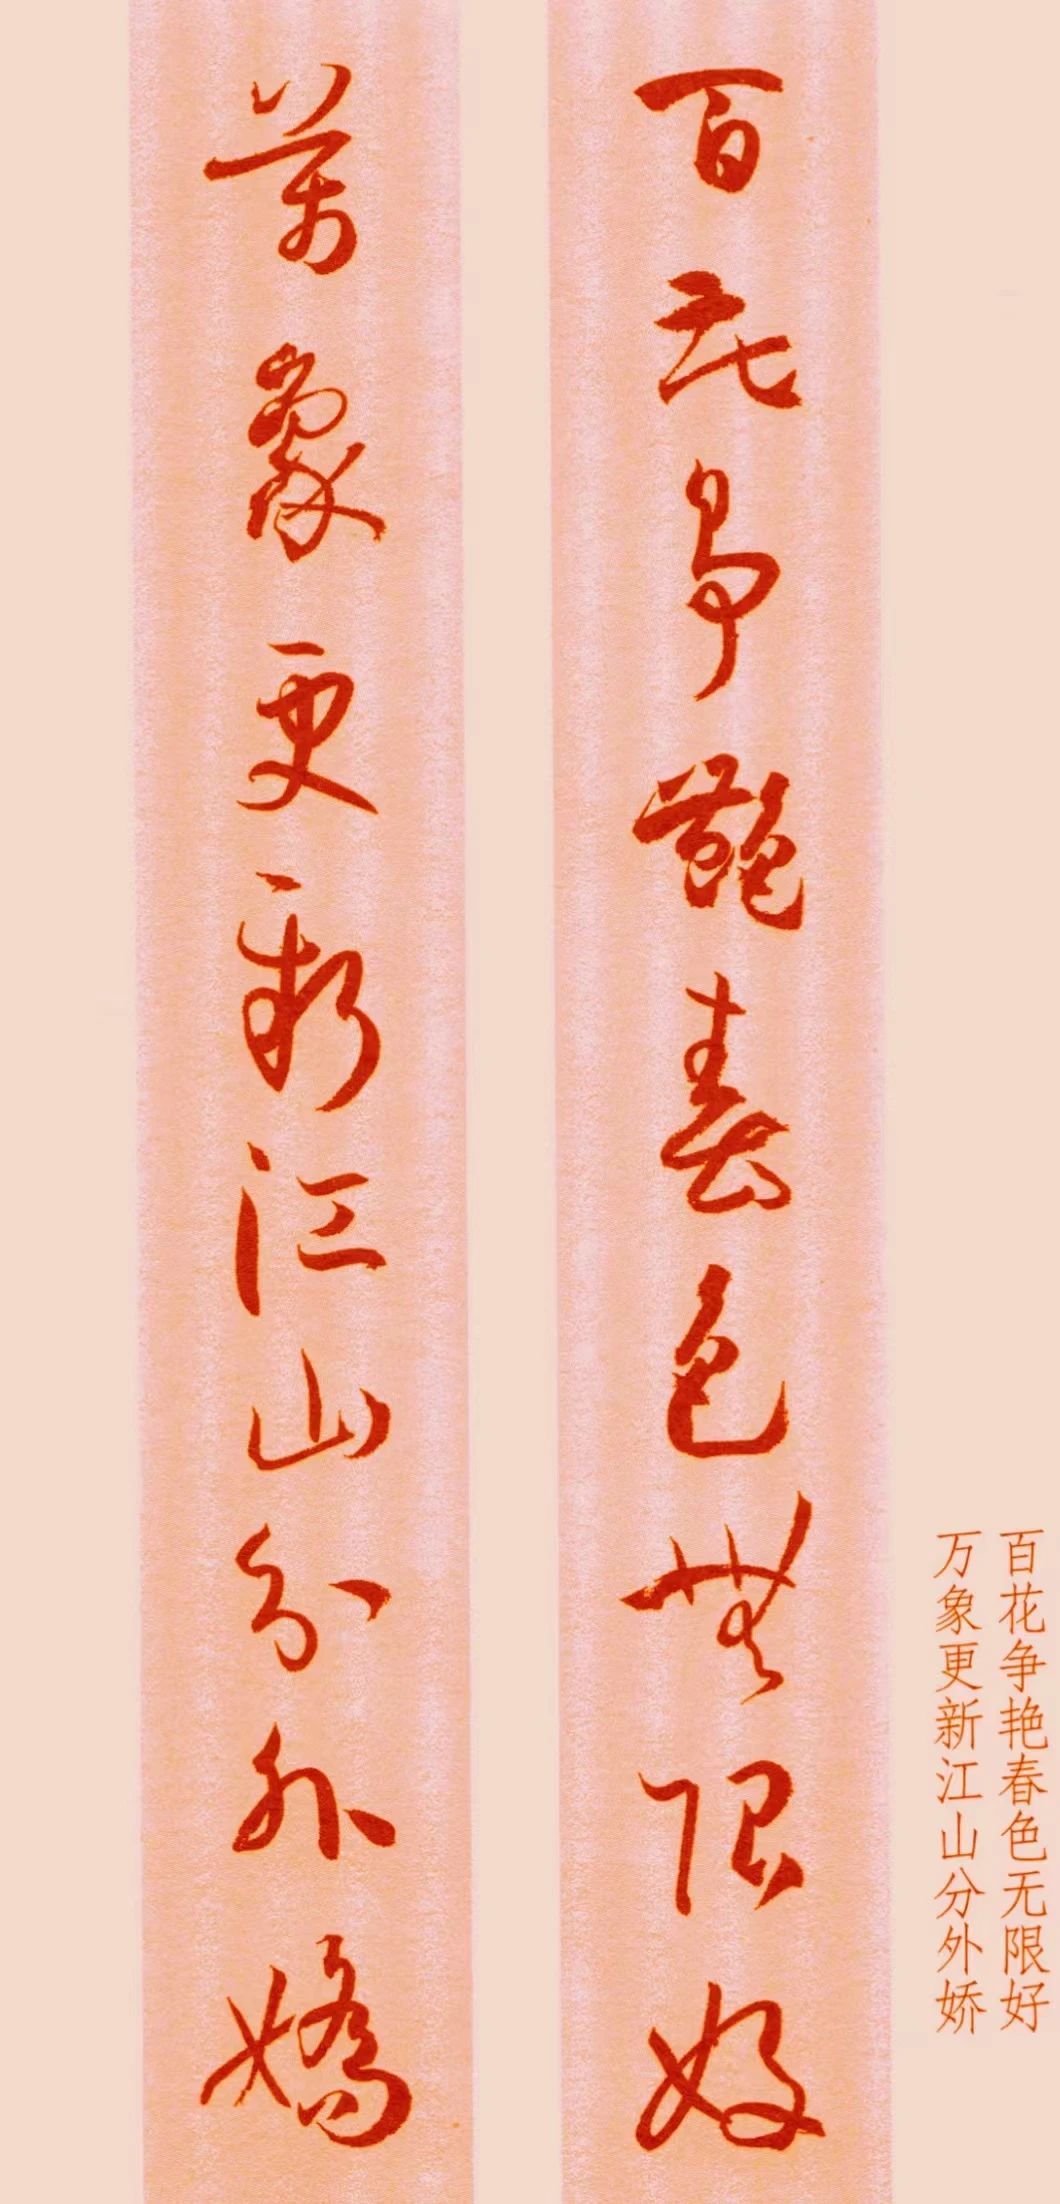 百花争艷春色無限好
萬象更新江山分外嬌
百花争艳春色无限好
万象更新江山分外娇